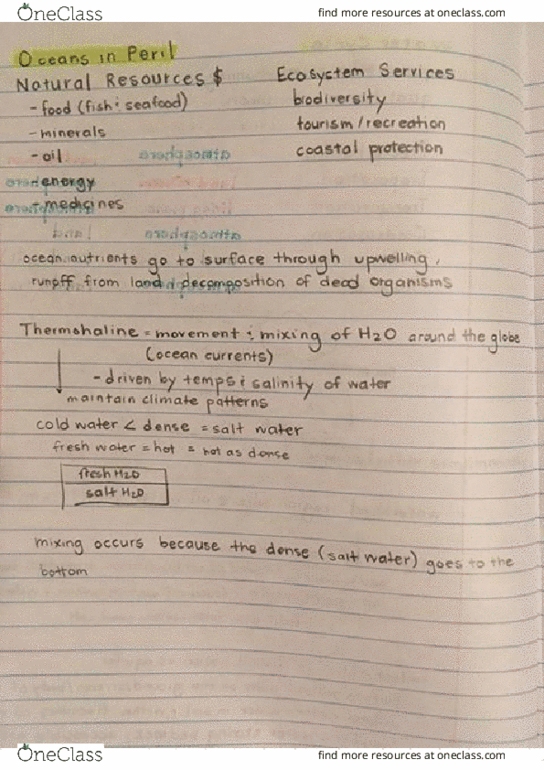 OneClass
find more resources at oneclass.com
Oceans in Peril
Natural Resources $
Ecosystem Services
- food (fish & seafood)
biodiversity
- minerals
tourism/recreation
- oil
coastal protection
energy
- medicines
ocean nutrients go to surface through upwelling,
runoff from land, decomposition of dead organisms
Thermohaline = movement & mixing of H2O around the globe
(ocean currents)
- driven by temps & salinity of water
maintain climate patterns
cold water < dense = salt water
fresh water = hot = not as dense
fresh H2O
salt H2O
mixing occurs because the dense (salt water) goes to the
bottom
OneClass
find more resources at oneclass.com